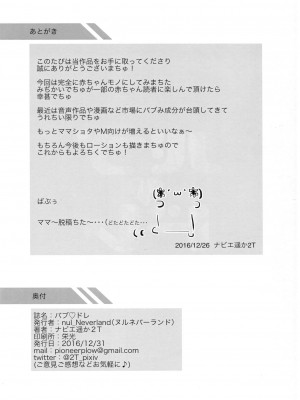 あとがき
このたびは当作品をお手に取ってくださり
誠にありがとうございまちゅ！
今回は完全に赤ちゃんモノにしてみまちた
みぢかいでちゅが一部の赤ちゃん読者に楽しんで頂けたら
幸甚でちゅ
最近は音声作品や漫画など市場にバブみ成分が台頭してきて
うれちい限りでちゅ
もっとママショタやM向けが増えるといいなぁ～
もちろん今後もローションも描きまちゅので
これからもよろちくでちゅ！
ばぶぅ
ママ～脱稿ちた～…(どたどたどた…
2016/12/26 ナビエ遥か2T
奥付
誌名：バブ♡ドレ
発行者：nul_Neverland(ヌルネバーランド)
著者：ナビエ遥か2T
印刷所：栄光
発行日：2016/12/31
mail：pioneerplow@gmail.com
twitter：@2T_pixiv
(ご意見ご感想などお気軽に♪)